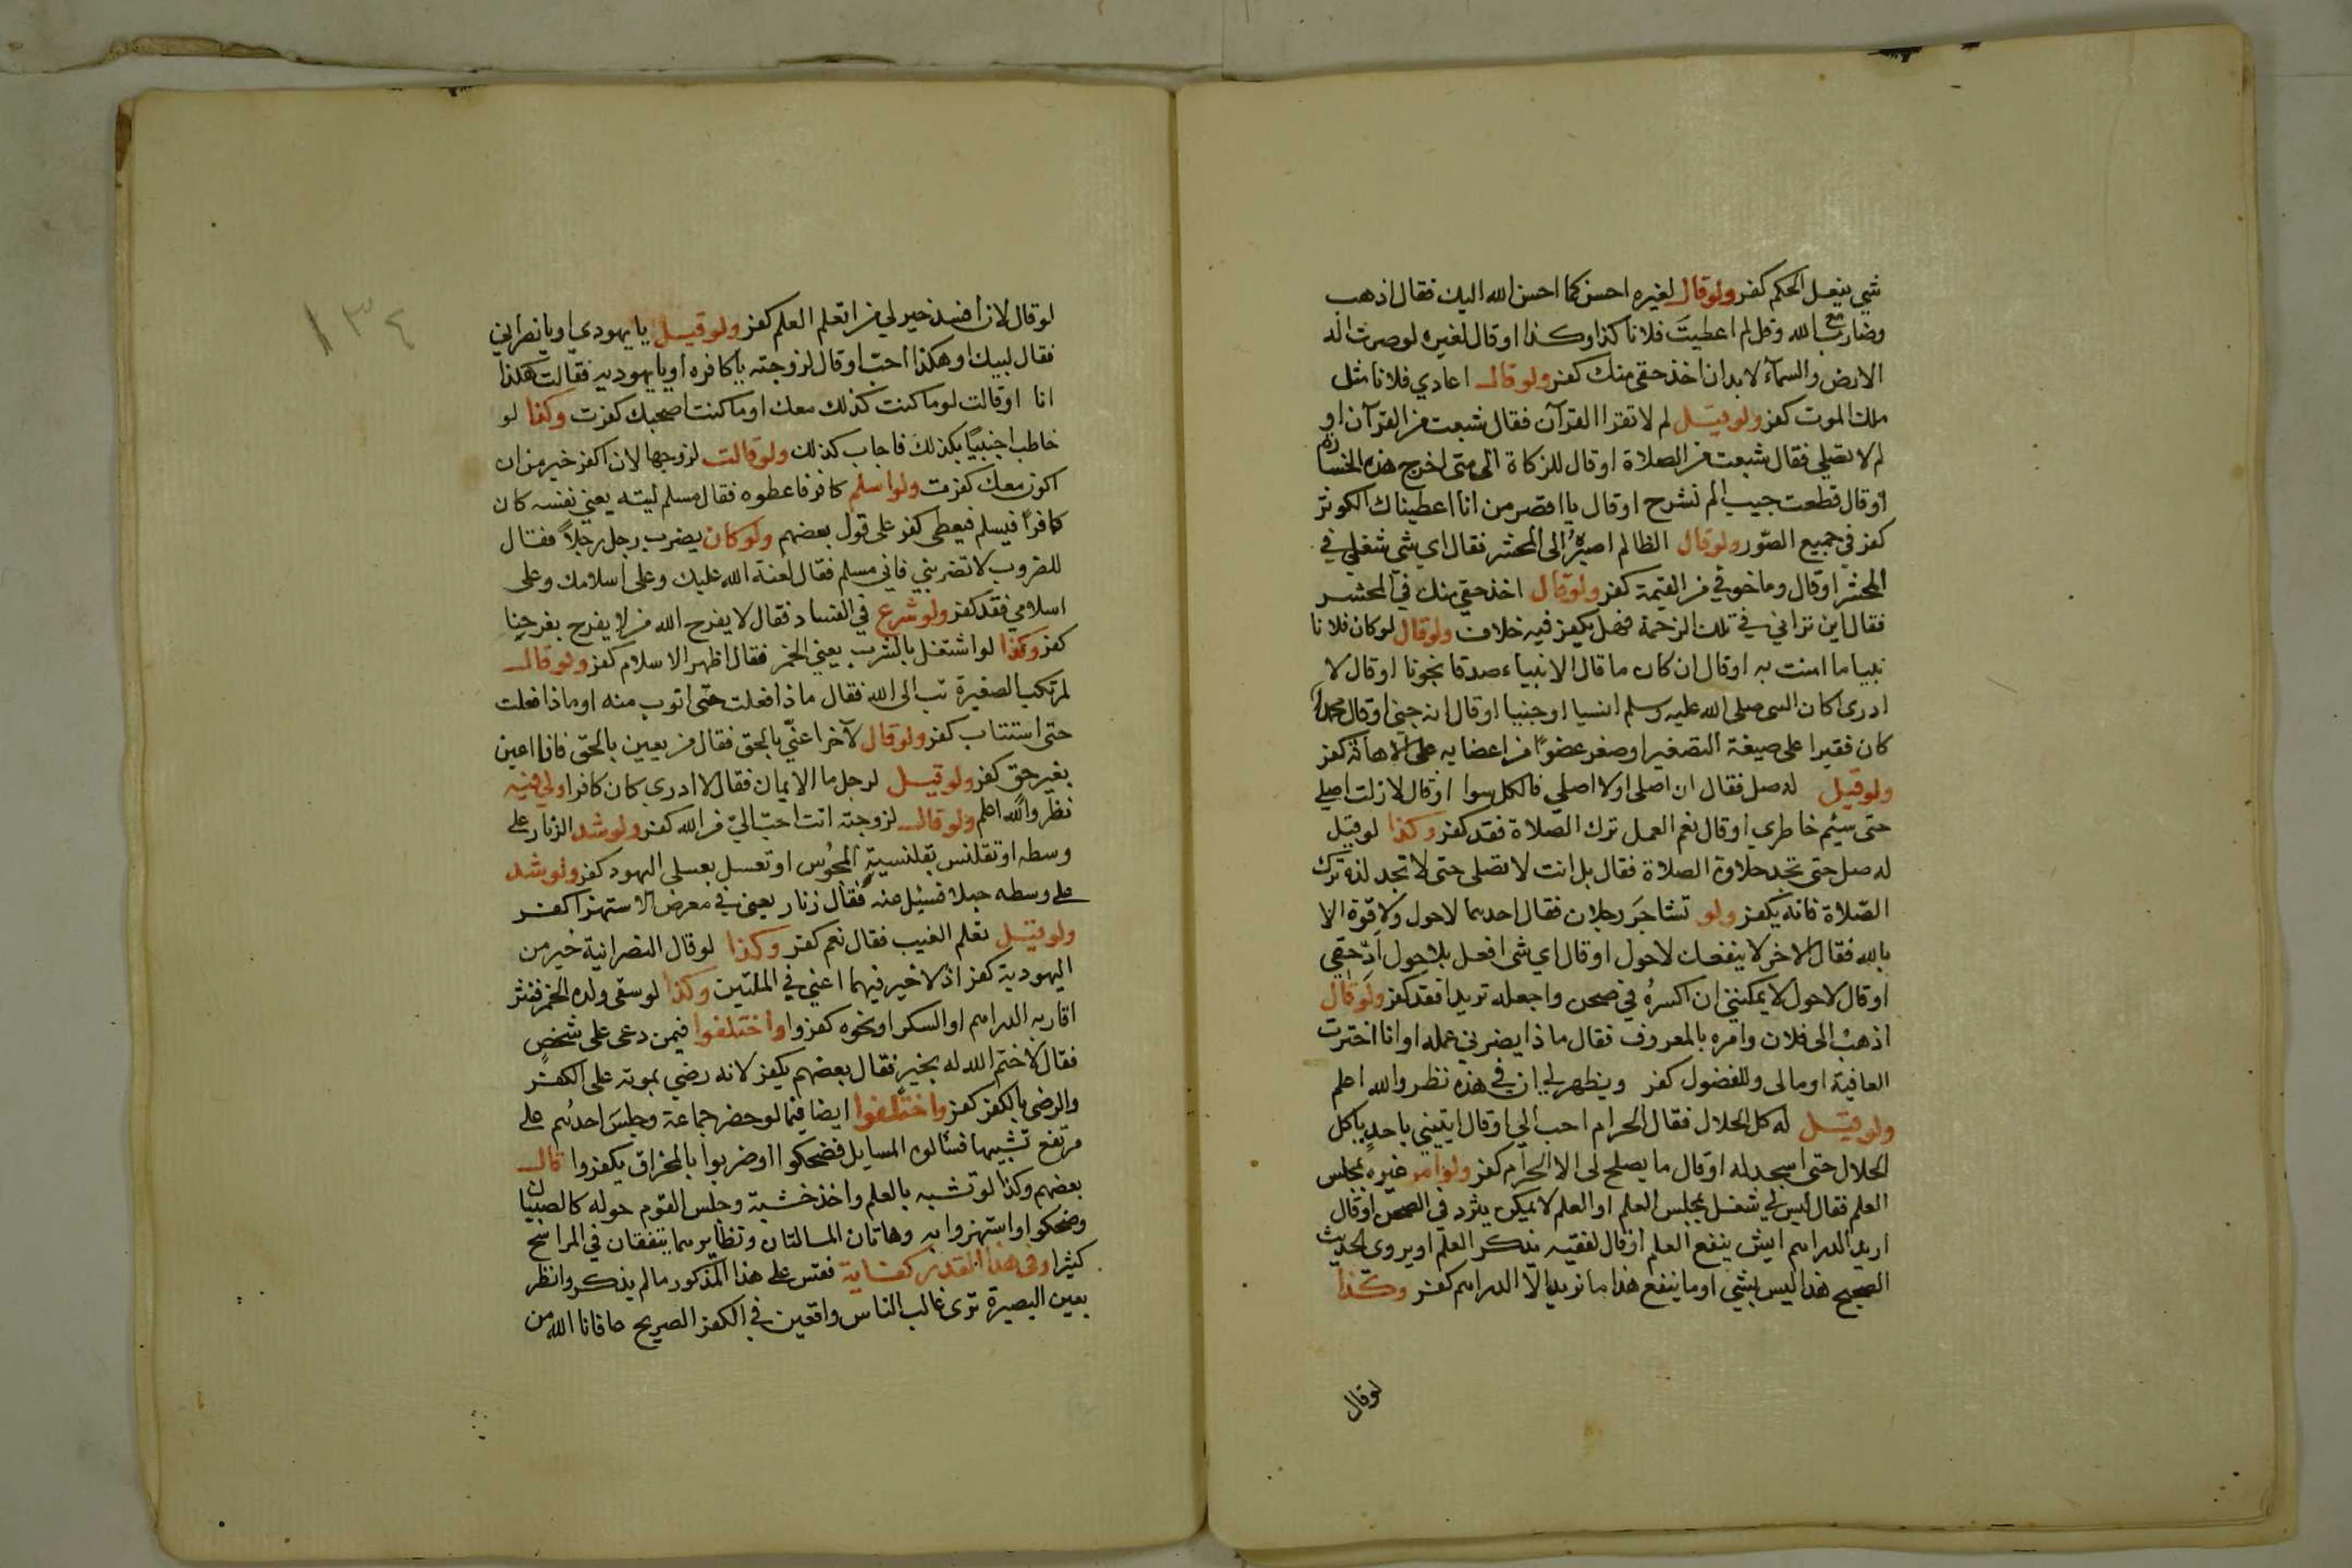 شي بفعل الحكم كفر ولو قال لغيره احسن كما احسن الله اليك فقال اذهب
وضارب مع الله وقل لم اعطيت فلانا كذا وكذا او قال لغيره لو صرت اله
الارض والسماء لا بد ان اخذ حقي منك كفر ولو قال اعادي فلانا مثل
ملك الموت كفر ولو قيل لم لا تقرا القرآن فقال شبعت من القرآن او
لم لا تصلي فقال شبعت من الصلاة او قال للزكاة الى متى اخرج هذه الخسارة
او قال قطعت جيب الم نشرح او قال يا اقصر من انا اعطيناك الكوثر
كفر في جميع الصور ولو قال الظالم اصبر الى المحشر فقال اي شي شغلي في
المحشر او قال وما خوفي من القيمة كفر ولو قال اخذ حقي منك في المحشر
فقال اين تراني في تلك الزحمة فهل يكفر فيه خلاف ولو قال لو كان فلانا
نبيا ما امنت به او قال ان كان ما قال الانبياء صدقا نجونا او قال لا
ادرى اكان النبي صلى الله عليه وسلم انسيا او جنيا او قال انه جني او قال محمدا
كان فقيرا على صيغة التصغير او صغر عضوا من اعضايه على الاهانة كفر
ولو قيل له صل فقال ان اصلى او لا اصلي فالكل سوا او قال لا زلت اصلي
حتى سئم خاطري او قال نعم العمل ترك الصلاة فقد كفر وكذا لو قيل
له صل حتى تجد حلاوة الصلاة فقال بل انت لا تصلى حتى لا تجد لذة ترك
الصلاة فانه يكفر ولو تشاجر رجلان فقال احدهما لا حول ولا قوة الا
بالله فقال الاخر لا ينفعك لا حول او قال اي شى افعل بلا حول ادّ حقي
او قال لا حول لا يمكنني ان اكسره في صحن واجعله تريدا فقد كفر ولو قال
اذهب الى فلان وامره بالمعروف فقال ماذا يضرني عمله او انا اخترت
العافية او مالى وللفضول كفر ويظهر لي ان في هذه نظر والله اعلم
ولو قيل له كل الحلال فقال الحرام احب الي او قال ايتيني باحد ياكل
الحلال حتى اسجد له او قال ما يصلح لى الا الحرام كفر ولو امر غيره بمجلس
العلم فقال ليس لي شغل بمجلس العلم او العلم لا يمكن يثرد في الصحن او قال
اريد الدراهم ايش ينفع العلم او قال لفقيه يذكر العلم او يروي الحديث
الصحيح هذا ليس بشي او ما ينفع هذا ما نريد الا الدراهم كفر وكذا
لو قال
١٣٤
لو قال لان افسد خير لي من اتعلم العلم كفر ولو قيل يا يهودي او يا نصراني
فقال لبيك او هكذا احب او قال لزوجته يا كافره او يا يهوديه فقالت هكذا
انا او قالت لو ما كنت كذلك معك او ما كنت اصحبك كفرت وكذا لو
خاطب اجنبيا بكذلك فاجاب كذلك ولو قالت لزوجها لان اكفر خير من ان
اكون معك كفرت ولو اسلم كافر فاعطوه فقال مسلم ليته يعني نفسه كان
كافرا فيسلم فيعطى كفر على قول بعضهم ولو كان يضرب رجل رجلا فقال
المضروب لا تضربني فاني مسلم فقال لعنة الله عليك وعلى اسلامك وعلى
اسلامي فقد كفر ولو شرع في الفساد فقال لا يفرح الله من لا يفرح بفرحنا
كفر وكذا لو اشتغل بالشرب يعني الخمر فقال اظهر الاسلام كفر ولو قال
لمرتكب الصغيرة تب الى الله فقال ماذا فعلت حتى اتوب منه او ماذا فعلت
حتى استتاب كفر ولو قال لآخر اعني بالحق فقال من يعين بالحق فانا اعين
بغير حق كفر ولو قيل لرجل ما الايمان فقال لا ادري كان كافرا ولي فيه
نظر والله اعلم ولو قال لزوجته انت احب الي من الله كفر ولو شد الزنار على
وسطه او تقلنس بقلنسية المجوس او تعسل بعسلى اليهود كفر ولو شد
على وسطه حبلا فسئل عنه فقال زنار يعني في معرض الاستهزا كفر
ولو قيل تعلم الغيب فقال نعم كفر وكذا لو قال النصرانية خير من
اليهودية كفر اذ لا خير فيهما اعني في الملتين وكذا لو سقى ولده الخمر فنثر
اقاربه الدراهم او السكر او نحوه كفروا واختلفوا فيمن دعى على شخص
فقال لا ختم الله له بخير فقال بعضهم يكفر لانه رضي بموته على الكفر
والرضى بالكفر كفر واختلفوا ايضا فيما لو حضر جماعة وجلس احدهم على
مرتفع تشبيها فسألوه المسايل فضحكوا او ضربوا بالمخراق يكفروا قال
بعضهم وكذا لو تشبه بالعلم واخذ خشبة وجلس القوم حوله كالصبيان
وضحكوا واستهزوا به وهاتان المسالتان ونظايرهما يتفقان في المراسح
كثيرا وفي هذا القدر كفاية فقس على هذا المذكور ما لم يذكر وانظر
بعين البصيرة ترى غالب الناس واقعين في الكفر الصريح عافانا الله من